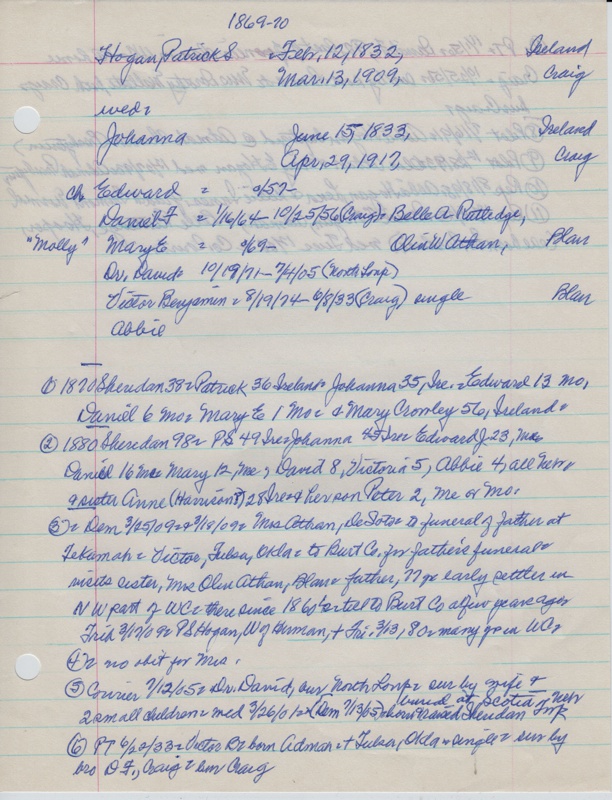 1869-70
Hogan, Patrick S = Feb. 12, 1832, Ireland
Mar. 13, 1909, Craig
wed=
Johanna June 15, 1833, Ireland
Apr. 29, 1917, Craig
ch Edward = 9/57-
Daniel F = 1/16/64 - 10/25/56 (Craig) = Belle A Rutledge,
"Molly" Mary E = 9/69- Olin W Athan, Blair
Dr. David = 10/19/71 - 7/4/05 (North Loup)
Victor Benjamin = 8/19/74 - 6/8/33 (Craig) single Blair
Abbie
① 1870 Sheridan 38 = Patrick 36 Ireland = Johanna 35, Ire. = Edward 13 Mo,
Daniel 6 Mo = Mary E 1 Mo = & Mary Crowley 56, Ireland =
② 1880 Sheridan 98 = PS 49 Ire = Johanna 45 Ire = Edward J 23, Me
Daniel 16 Me = Mary 12, Me; David 8, Victoria 5, Abbie 4, all Nebr
a sister Anne (Harrison?) 28 Ire & her son Peter 2, Me or Mo.
③ = Dem 3/25/09 & 3/18/09 = Mrs Athan, DeSoto = to funeral of father at
Tekamah = Victor, Tulsa, Okla = to Burt Co, for father's funeral =
visits sister, Mrs Olin Athan, Blair = father, 77 = early settler in
N W part of WC = there since 1860's = to Burt Co a few years ago
Trib 3/17/09 = PS Hogan, W of Herman, + Fri. 3/13, 80 = many yrs in WC =
④ = no obit for Mrs.
⑤ Courier 7/12/05 = Dr. David, bur North Loup = sur by wife &
2 small children = med 3/26/01 = (Dem 7/13/05) = buried at Scotia, Nebr
born & raised Sheridan Twp
⑥ PT 6/22/33 = Victor B = born Admah = + Tulsa, Okla = single = sur by
bro D.F., Craig = bur Craig